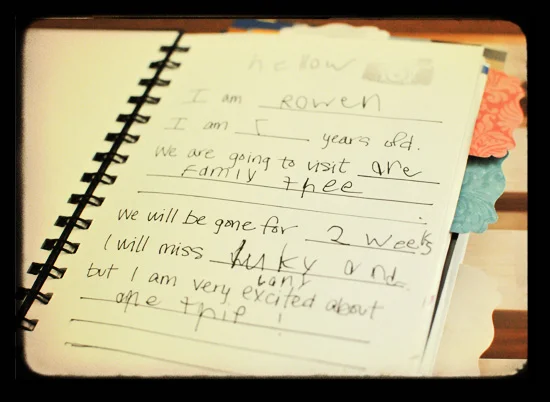 hellow
I am ROWEN
I am 5 years old.
We are going to visit are
Family thee
We will be gone for 2 weeks
I will miss luky and
but I am very excited about
are thip !